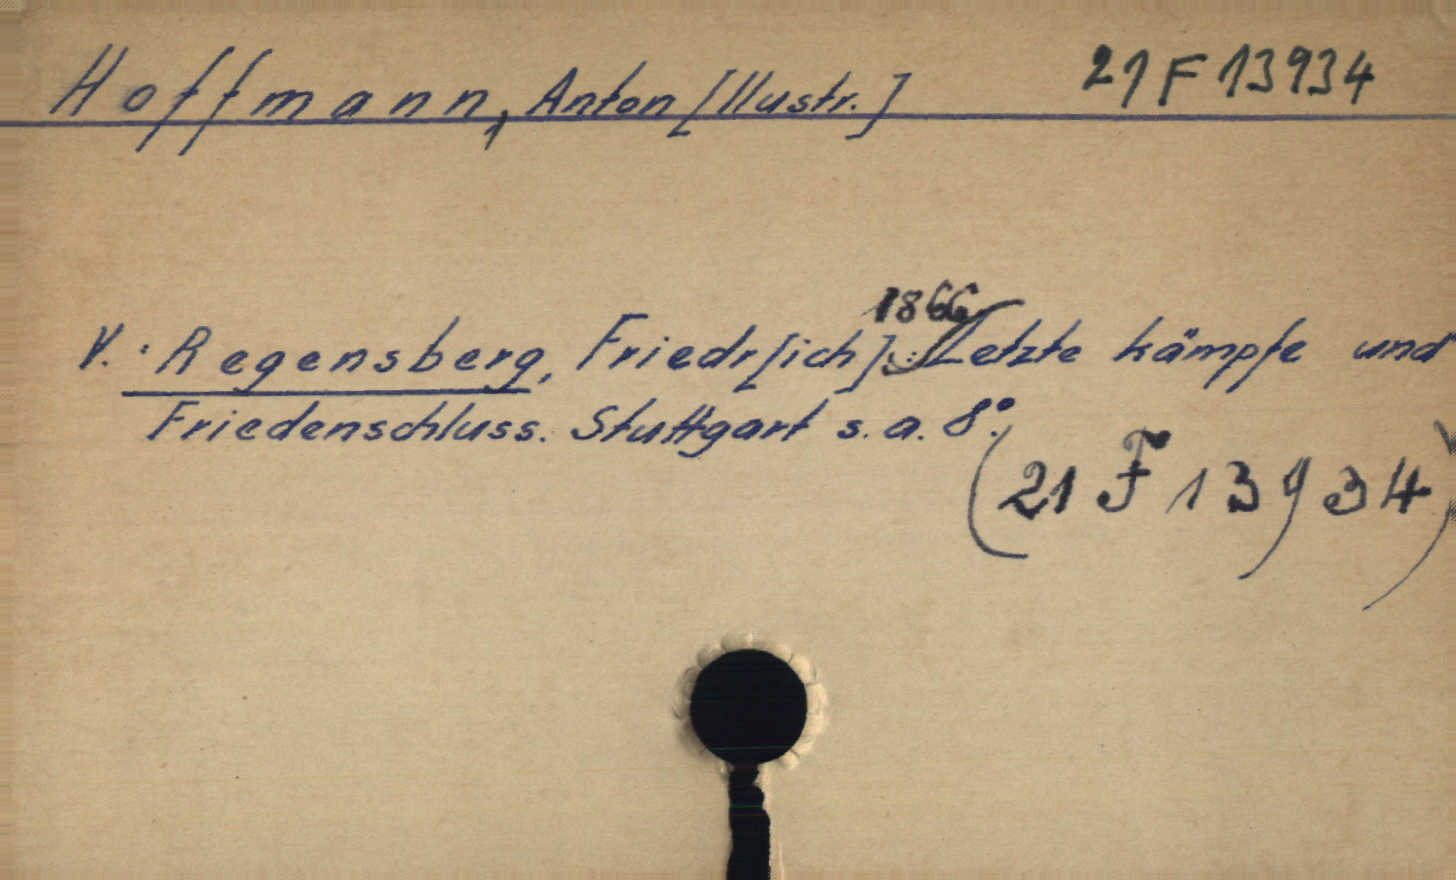 Hoffmann, Anton [Illustr.] 21 F 13934
V.: Regensberg, Friedr[ich]: 1866 Letzte kämpfe und
Friedenschluss. Stuttgart s.a. 8°.
(21 F 13934)